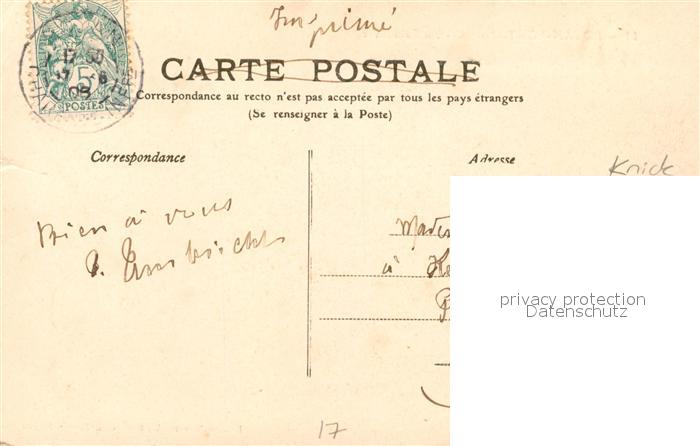 Imprimé
CARTE POSTALE
Correspondance au recto n'est pas acceptée par tous les pays étrangers
(Se renseigner à la Poste)
5
POSTES
Correspondance
Adresse
Knick
Bien à vous
à
privacy protection
Datenschutz
17